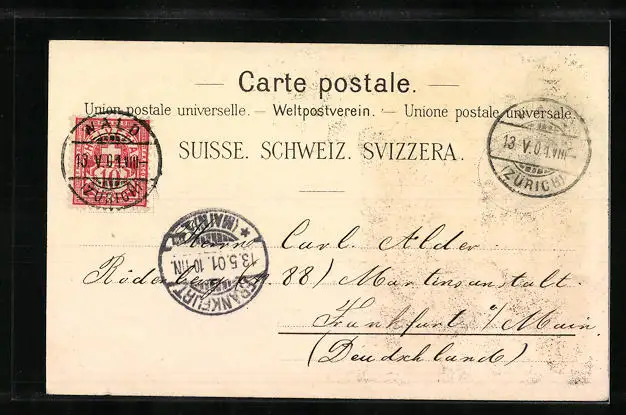 Carte postale.
Union postale universelle. — Weltpostverein. — Unione postale universale.
SUISSE. SCHWEIZ. SVIZZERA.
WALD
13.V.01.VIII
(ZÜRICH)
10
13.V.01.VIII
(ZÜRICH)
FRANKFURT
(MAIN)
13.5.01.10-11N.
Herrn Carl Alder
88) Martinsanstalt.
Frankfurt a/Main.
(Deudschland)